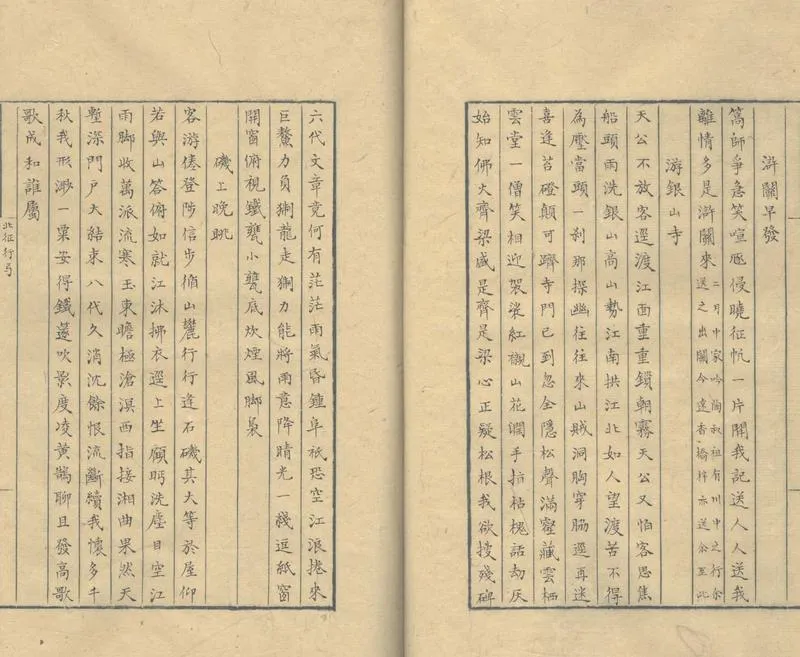 滸關早發
篙師爭急笑喧豗侵曉征帆一片開我記送人人送我
離情多是滸關來二月中家吟陶叔祖有川中之行余送之出關今遠香橋梓亦送余至此
游銀山寺
天公不放客逕渡江面重重鎖朝霧天公又怕客思焦
船頭雨洗銀山高山勢江南拱江北如人望渡苦不得
為壓當頭一剎那探幽往往來山賊洞胸穿腸逕再迷
喜逢苔磴顛可躋寺門已到忽全隱松聲滿壑藏雲栖
雲堂一僧笑相迎袈裟紅襯山花澗手指枯槐話劫灰
始知佛大齊梁盛是齊是梁心正疑松根我欲摸殘碑
六代文章竟何有茫茫雨氣昏鍾阜祇恐空江浪捲來
巨鰲力負猢龍走猢力能將雨意降晴光一綫逗紙窗
開窗俯視鐵甕小甕底炊煙風腳裊
磯上晚眺
客游倦登陟信步循山麓行行逢石磯其大等於屋仰
若與山答俯如就江沐拂衣逕上坐顧眄洗塵目空江
雨腳收萬派流寒玉東瞻極滄溟西指接湘曲果然天
塹深門戶大結束八代久消沈餘恨流斷續我懷多千
秋我形渺一粟安得鐵邃吹影度凌黃鵠聊且發高歌
歌成和誰屬
北征行弓